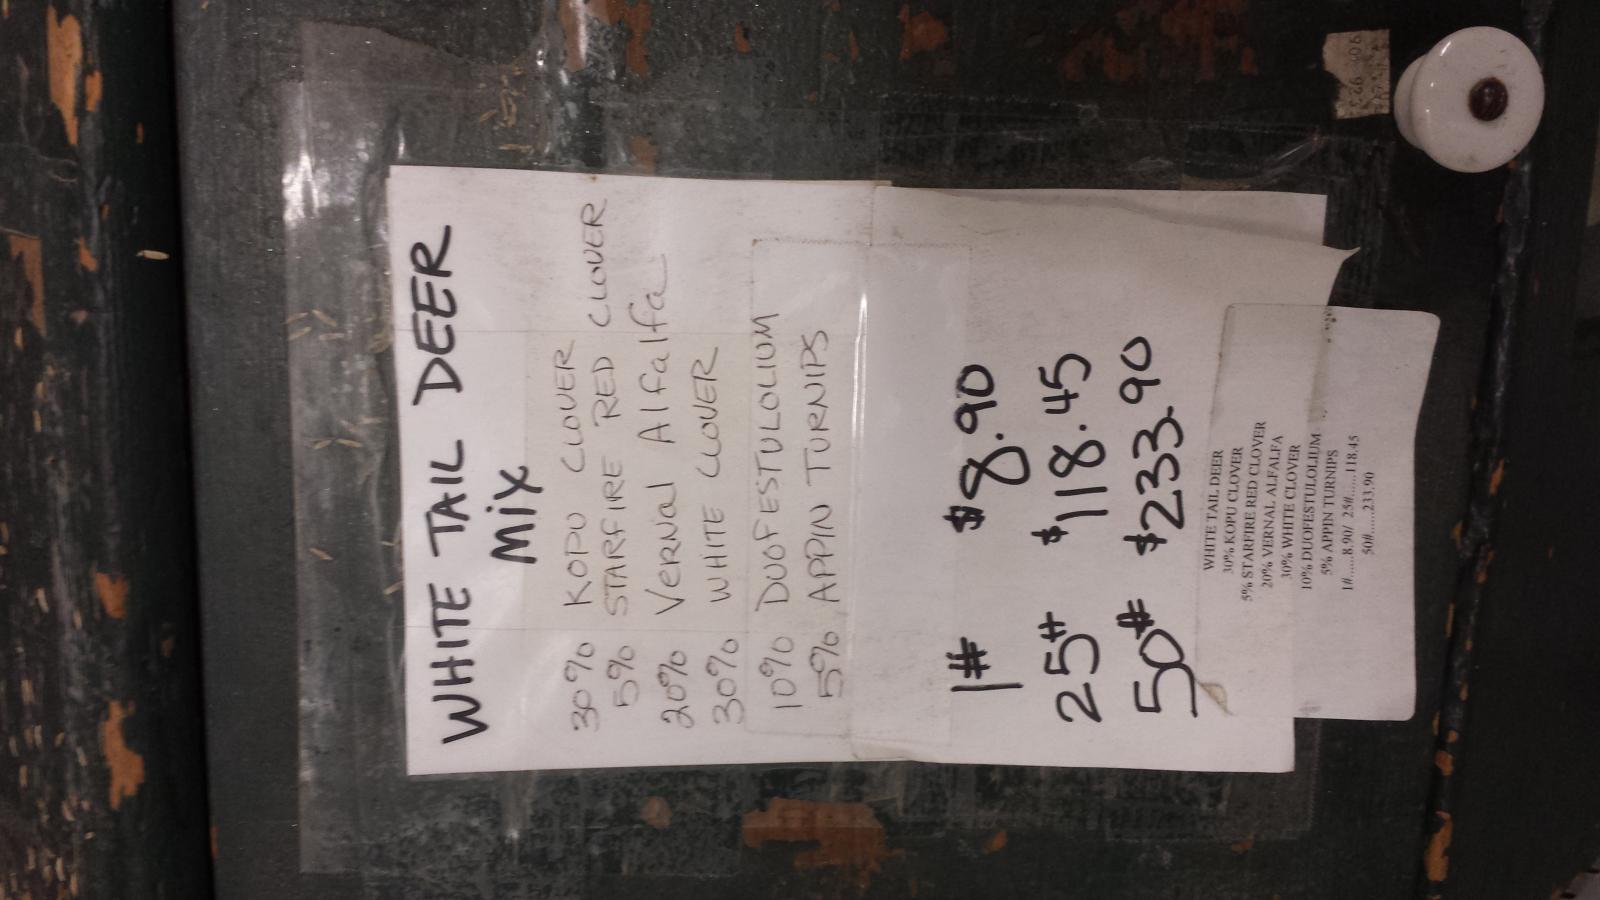 WHITE TAIL DEER
MIX
30% KOPU CLOVER
5% STARFIRE RED CLOVER
20% Vernal Alfalfa
30% WHITE CLOVER
10% DUOFESTULOLIUM
5% APPIN TURNIPS
1# $8.90
25# $118.45
50# $233.90
WHITE TAIL DEER
30% KOPU CLOVER
5% STARFIRE RED CLOVER
20% VERNAL ALFALFA
30% WHITE CLOVER
10% DUOFESTULOLIUM
5% APPIN TURNIPS
1#......8.90/ 25#......118.45
50#......233.90